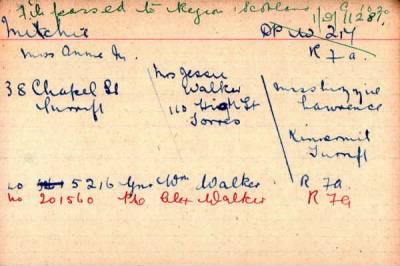 File passed to Region Scotland
Mitchie DP W 217
Miss Annie M. R 7a.
38 Chapel St
Turriff
Mrs Jessie
Walker
110 High St
Forres
Miss Lizzie
Lawrence
Kinnermit
Turriff
no 5216 Gnr Wm Walker. R 7a.
no 201560 Pte Alex Walker R 7a